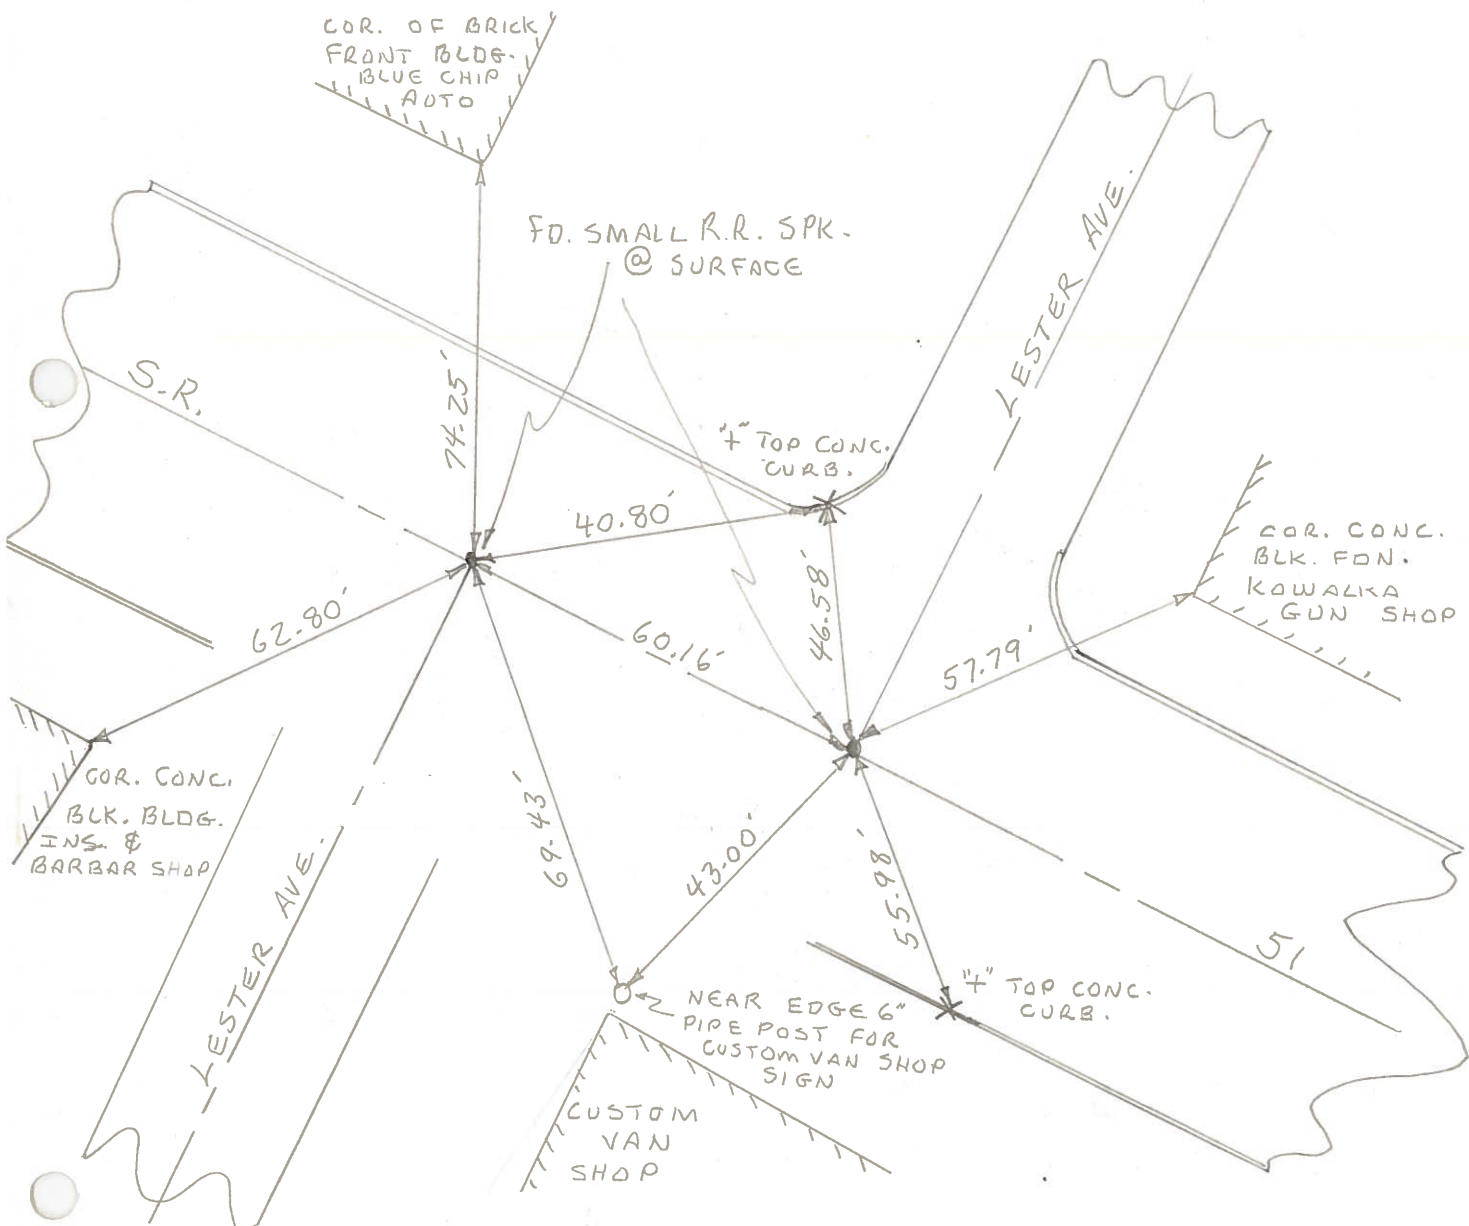 COR. OF BRICK
FRONT BLDG.
BLUE CHIP
AUTO
FD. SMALL R.R. SPK.
@ SURFACE
LESTER AVE.
S.R.
74.25'
"+" TOP CONC.
CURB.
40.80'
COR. CONC.
BLK. FDN.
KOWALKA
GUN SHOP
62.80'
60.16'
46.58'
57.79'
COR. CONC.
BLK. BLDG.
INS. &
BARBAR SHOP
69.43'
43.00'
55.98'
LESTER AVE.
51
"+" TOP CONC.
CURB.
NEAR EDGE 6"
PIPE POST FOR
CUSTOM VAN SHOP
SIGN
CUSTOM
VAN
SHOP